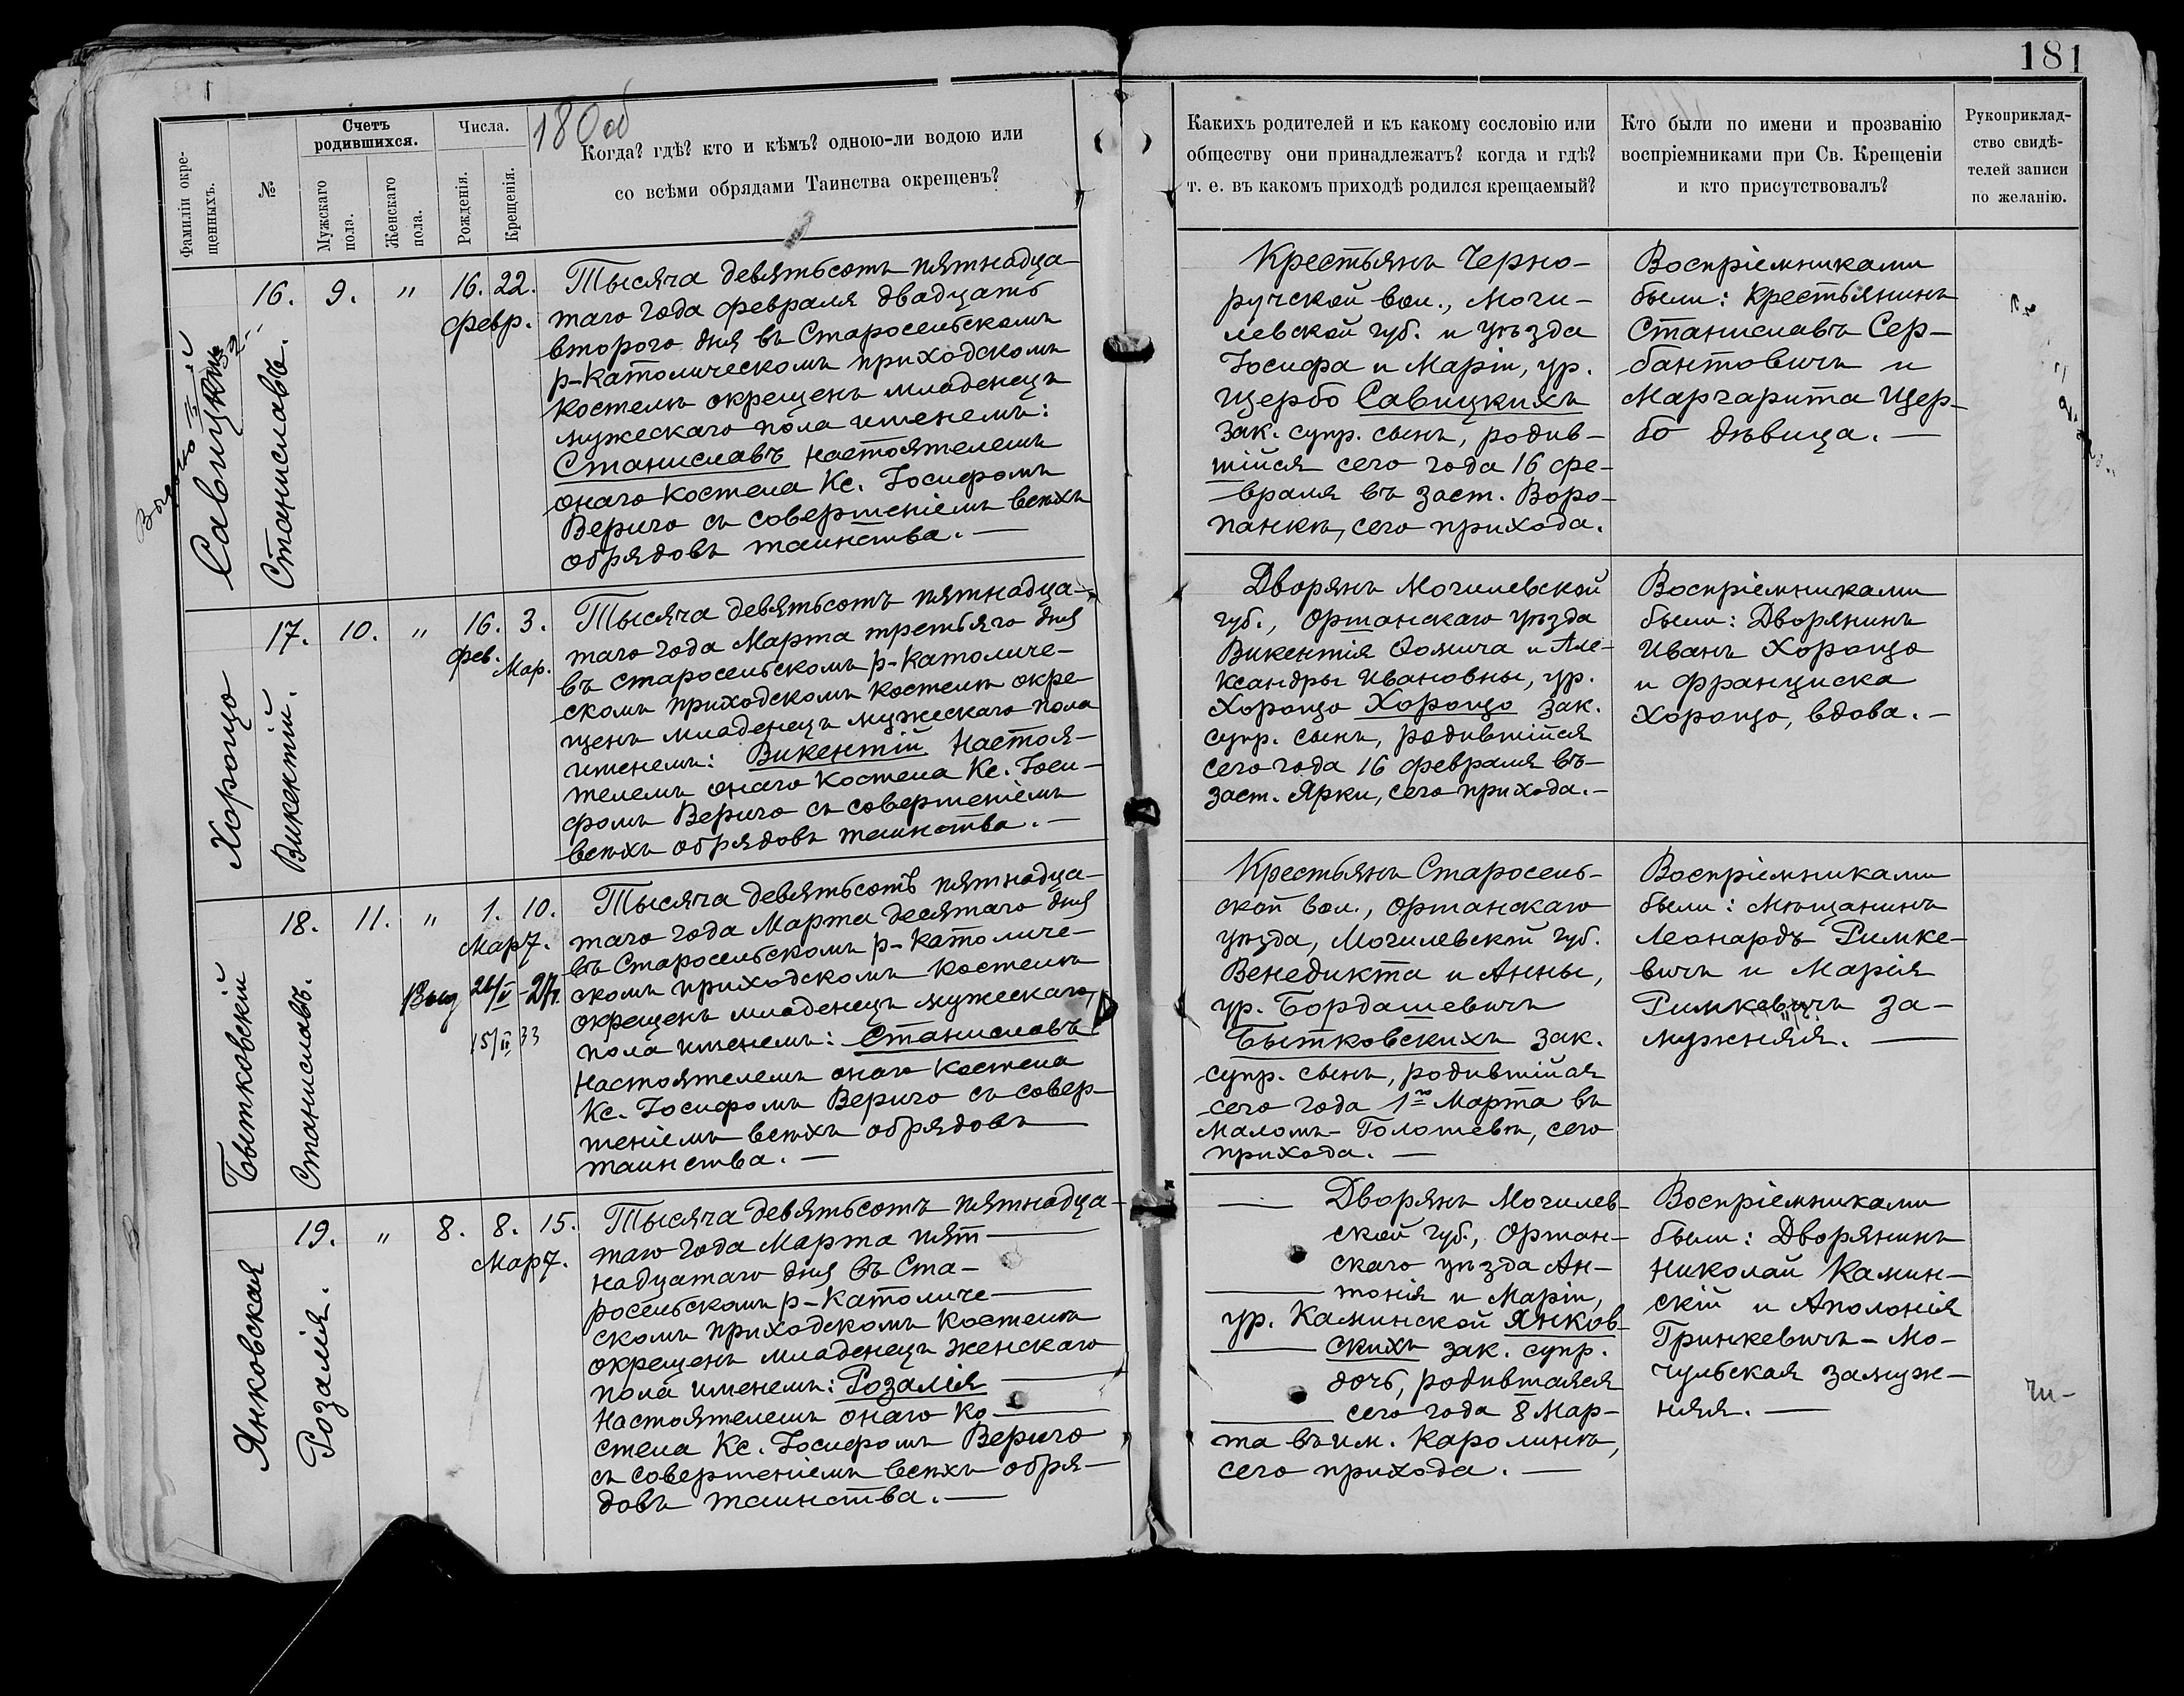 181
180об
Фамиліи окре-
щенныхъ.
№
Счетъ
родившихся.
Мужскаго
пола.
Женскаго
пола.
Числа.
Рожденія.
Крещенія.
Когда? гдѣ? кто и кѣмъ? одною-ли водою или
со всѣми обрядами Таинства окрещенъ?
Какихъ родителей и къ какому сословію или
обществу они принадлежатъ? когда и гдѣ?
т. е. въ какомъ приходѣ родился крещаемый?
Кто были по имени и прозванію
воспріемниками при Св. Крещеніи
и кто присутствовалъ?
Рукоприклад-
ство свидѣ-
телей записи
по желанію.
Станиславъ.
16. 9. " 16. 22.
февр.
Тысяча девятьсотъ пятнадца-
таго года февраля двадцать
второго дня въ Старосельскомъ
р-Католическомъ приходскомъ
костелѣ окрещенъ младенецъ
мужескаго пола именемъ:
Станиславъ настоятелемъ
онаго костела Кс. Іосифомъ
Веричо съ совершеніемъ всѣхъ
обрядовъ таинства. —
Крестьянъ Черно-
ручской вол., Моги-
левской губ. и уѣзда
Іосифа и Маріи, ур.
Щербо Савицкихъ
зак. супр. сынъ, родив-
шійся сего года 16 фе-
враля въ заст. Воро-
панкѣ, сего прихода.
Воспріемниками
были: Крестьянинъ
Станиславъ Сер-
бантовичъ и
Маргарита Щер-
бо дѣвица. —
Хорощо
Викентій.
17. 10. " 16. 3.
фев. Мар.
Тысяча девятьсотъ пятнадца-
таго года Марта третьяго дня
въ Старосельскомъ р-Католиче-
скомъ приходскомъ костелѣ окре-
щенъ младенецъ мужескаго пола
именемъ: Викентій Настоя-
телемъ онаго костела Кс. Іоси-
фомъ Веричо съ совершеніемъ
всѣхъ обрядовъ таинства. —
Дворянъ Могилевской
губ., Оршанскаго уѣзда
Викентія Ѳомича и Але-
ксандры Ивановны, ур.
Хорощо Хорощо зак.
супр. сынъ, родившійся
сего года 16 февраля въ
заст. Ярки, сего прихода. —
Воспріемниками
были: Дворянинъ
Иванъ Хорощо
и Франциска
Хорощо, вдова. —
Бытковскій
Станиславъ.
18. 11. " 1. 10.
Март.
15/II 33
Тысяча девятьсотъ пятнадца-
таго года Марта десятаго дня
въ Старосельскомъ р-Католиче-
скомъ приходскомъ костелѣ
окрещенъ младенецъ мужескаго
пола именемъ: Станиславъ
Настоятелемъ онаго костела
Кс. Іосифомъ Веричо съ совер-
шеніемъ всѣхъ обрядовъ
таинства. —
Крестьянъ Старосель-
ской вол., Оршанскаго
уѣзда, Могилевской губ.
Венедикта и Анны,
ур. Бордашевичъ
Бытковскихъ зак.
супр. сынъ, родившійся
сего года 1го Марта въ
Маломъ-Голошевѣ, сего
прихода. —
Воспріемниками
были: Мѣщанинъ
Леонардъ Римке-
вичъ и Марія
Римкевичъ за-
мужняя. —
Янковская
Розалія.
19. " 8. 8. 15.
Март.
Тысяча девятьсотъ пятнадца-
таго года Марта пят-
надцатаго дня въ Ста-
росельскомъ р-Католиче-
скомъ приходскомъ костелѣ
окрещенъ младенецъ женскаго
пола именемъ: Розалія
Настоятелемъ онаго ко-
стела Кс. Іосифомъ Веричо
съ совершеніемъ всѣхъ обря-
довъ таинства. —
Дворянъ Могилев-
ской губ., Оршан-
скаго уѣзда Ан-
тонія и Маріи,
ур. Каминской Янков-
скихъ зак. супр.
дочь, родившаяся
сего года 8 Мар-
та въ им. Каролинѣ,
сего прихода. —
Воспріемниками
были: Дворянинъ
Николай Камин-
скій и Аполонія
Гринкевичъ-Мо-
чульская замуж-
няя. —